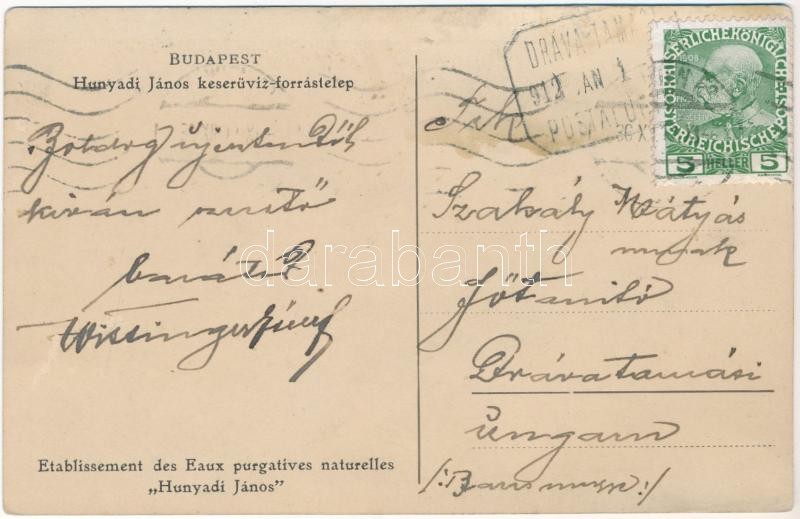 BUDAPEST
Hunyadi János keserűvíz-forrástelep
Boldog ujestendőt
kiván
barátod
Wissinger József
Etablissement des Eaux purgatives naturelles
„Hunyadi János”
DRÁVA-TAM
912 JAN 1
POSTAI
KAISERLICHE KÖNIGLICHE
ÖSTERREICHISCHE
5 HELLER 5
Szabály Mátyás
urnak
főtanitó
Drávatamási
Ungarn
darabanth